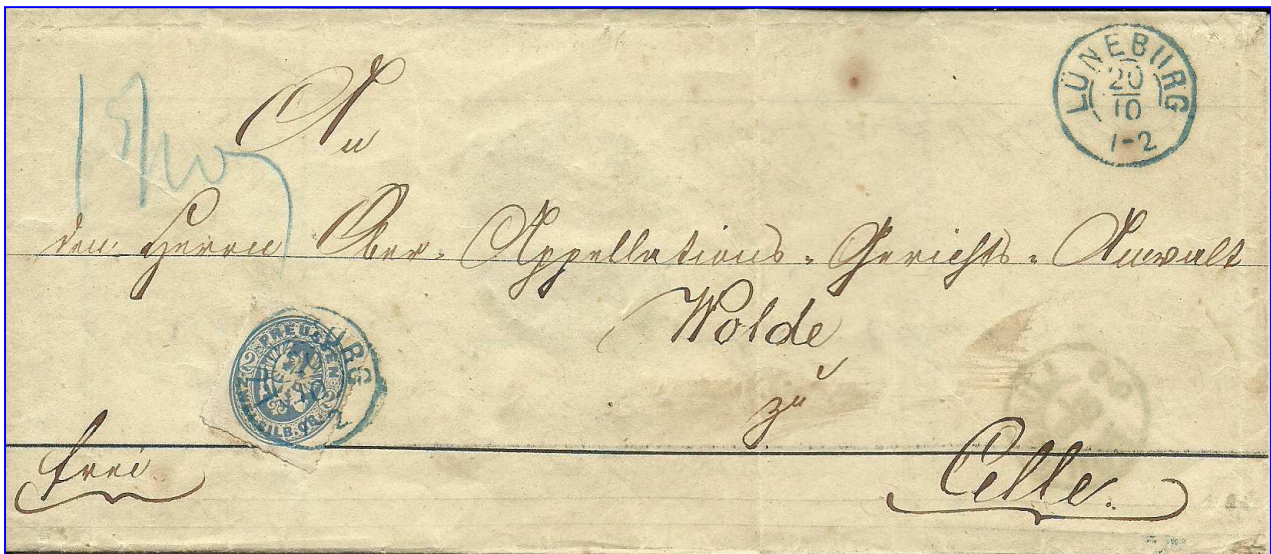 LÜNEBURG
20
10
1-2
An
den Herrn Ober-Appellations-Gerichts-Anwalt
Wolde
zu
Celle.
frei
PREUSSEN
2
ZWEI SILB. GR.